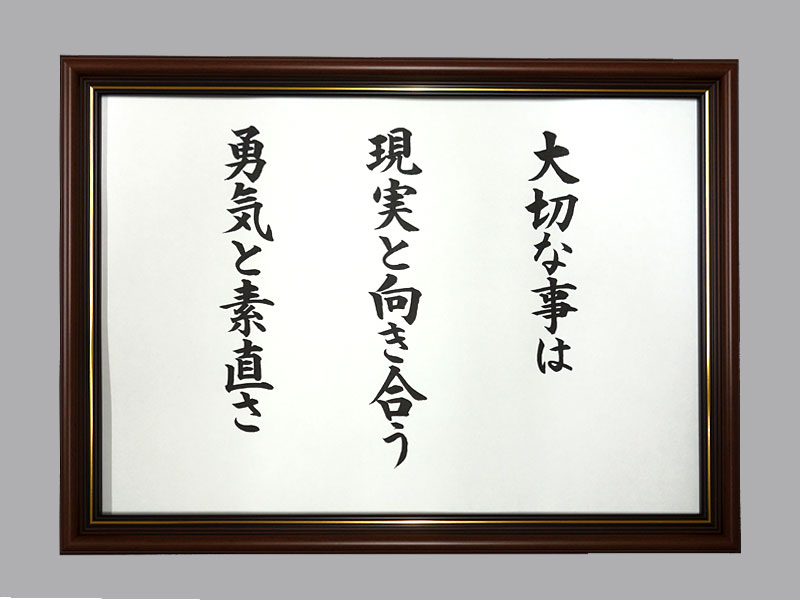 大切な事は
現実と向き合う
勇気と素直さ